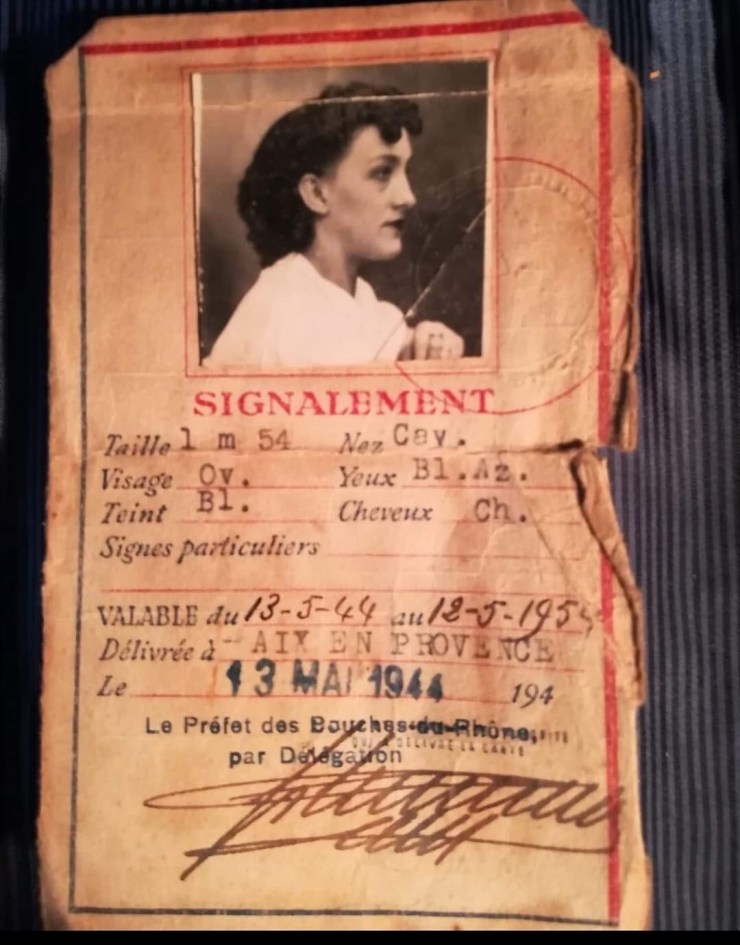 SIGNALEMENT
Taille 1 m 54 Nez Cav.
Visage Ov. Yeux Bl.Az.
Teint Bl. Cheveux Ch.
Signes particuliers
VALABLE du 13-5-44 au 12-5-1954
Délivrée à - AIX EN PROVENCE
Le 13 MAI 1944 194
Le Préfet des Bouches-du-Rhône,
QUI A DÉLIVRÉ LA CARTE
par Délégation